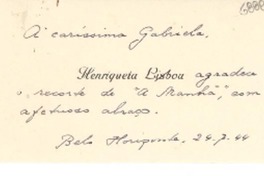 A' caríssima Gabriela,
Henriqueta Lisboa agradece
o recorte de "A Manhã", com
afetuoso abraço.
Belo Horizonte, 24-7-44